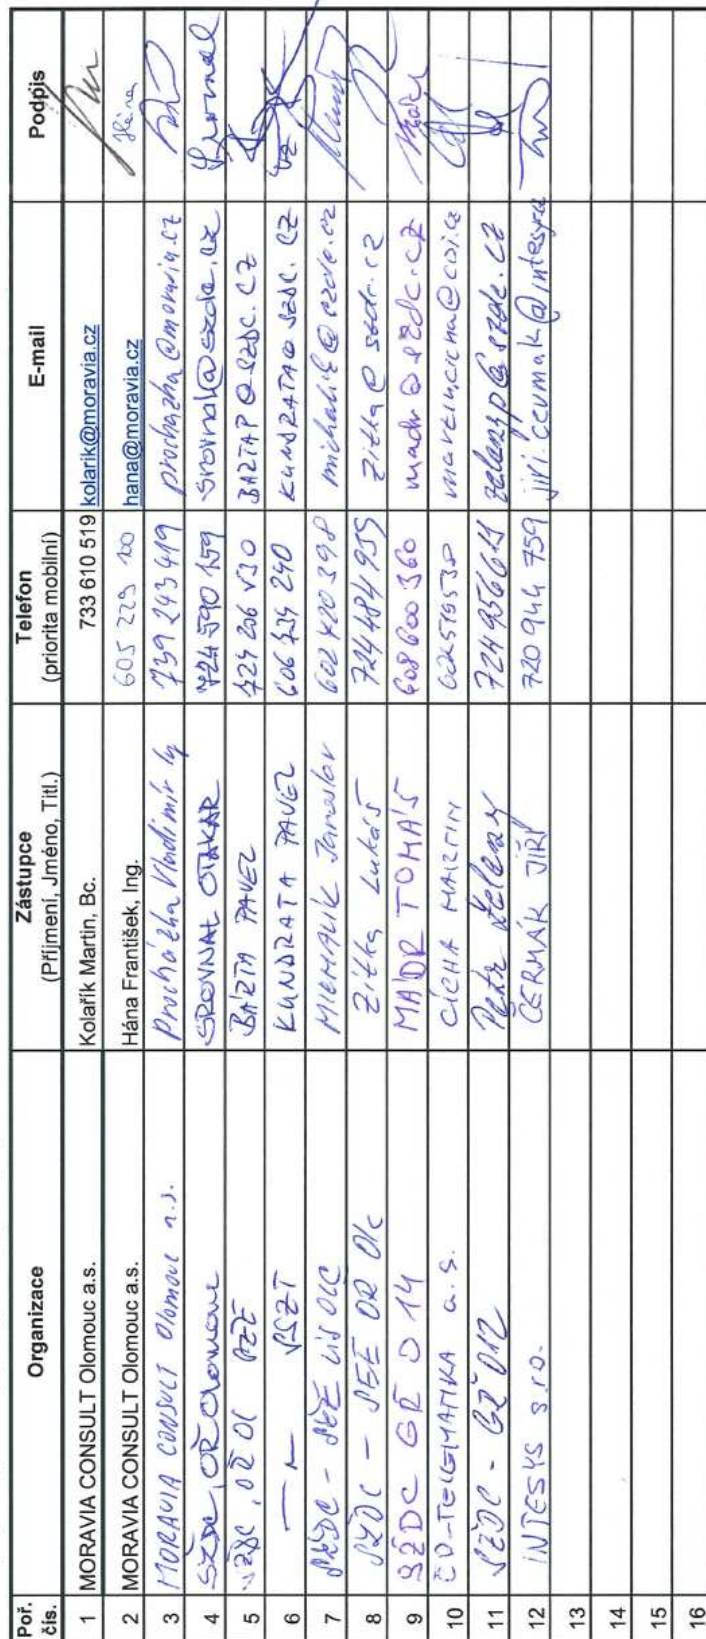 Poř. čís. Organizace Zástupce (Příjmení, Jméno, Titl.) Telefon (priorita mobilní) E-mail Podpis
1 MORAVIA CONSULT Olomouc a.s. Kolařík Martin, Bc. 733 610 519 kolarik@moravia.cz
2 MORAVIA CONSULT Olomouc a.s. Hána František, Ing. 605 229 100 hana@moravia.cz Hána
3 MORAVIA CONSULT Olomouc a.s. Procházka Vladimír Ing 739 243 419 prochazka@moravia.cz
4 SŽDC, OŘ Olomouc SROVNAL OTAKAR 724 590 159 srovnal@szdc.cz Srovnal
5 SŽDC, OŘ OLC BÁRTA PAVEL BARTAP@SZDC.CZ
6 KUNDRATA PAVEL KUNDRATA@SZDC.CZ
7 SŽDC - SEE OLC MICHALÍK Jaroslav 602 420 398 michalik@szdc.cz
8 SŽDC - SEE OŘ Olc Zítka Lukáš 724 484 955 zitka@szdc.cz
9 SŽDC GŘ O 14 MÁDR TOMÁŠ 608 600 360 madr@szdc.cz Mádr
10 ČD-TELEMATIKA a.s. CÍCHA MARTIN
11 SŽDC - GŘ O12 Petr Zelený zelenyp@szdc.cz
12 INTESYS s.r.o. ČERMÁK JIŘÍ 720 944 759 jiri.cermak@intesys
13
14
15
16